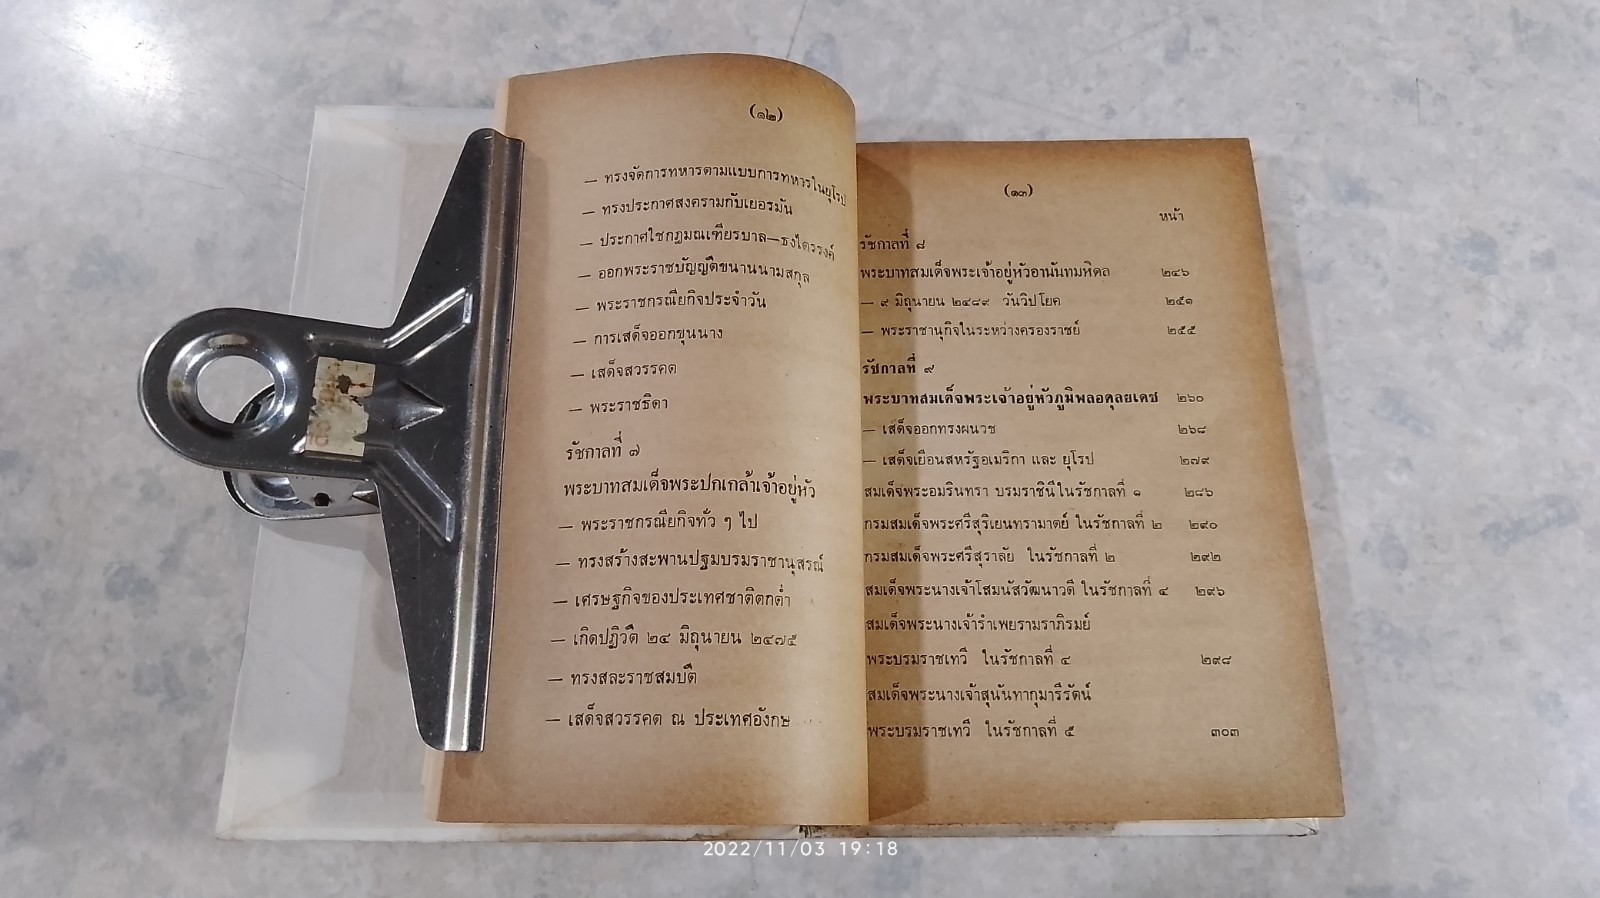 (๑๒)
— ทรงจัดการทหารตามแบบการทหารในยุโรป
— ทรงประกาศสงครามกับเยอรมัน
— ประกาศใชกฎมณเฑียรบาล—ธงไตรรงค์
— ออกพระราชบัญญัติขนานนามสกุล
— พระราชกรณียกิจประจำวัน
— การเสด็จออกขุนนาง
— เสด็จสวรรคต
— พระราชธิดา
รัชกาลที่ ๗
พระบาทสมเด็จพระปกเกล้าเจ้าอยู่หัว
— พระราชกรณียกิจทั่ว ๆ ไป
— ทรงสร้างสะพานปฐมบรมราชานุสรณ์
— เศรษฐกิจของประเทศชาติตกต่ำ
— เกิดปฏิวัติ ๒๔ มิถุนายน ๒๔๗๕
— ทรงสละราชสมบัติ
— เสด็จสวรรคต ณ ประเทศอังกฤษ
(๑๓)
หน้า
รัชกาลที่ ๘
พระบาทสมเด็จพระเจ้าอยู่หัวอานันทมหิดล ๒๔๖
— ๙ มิถุนายน ๒๔๘๙ วันวิปโยค ๒๕๑
— พระราชานุกิจในระหว่างครองราชย์ ๒๕๕
รัชกาลที่ ๙
พระบาทสมเด็จพระเจ้าอยู่หัวภูมิพลอดุลยเดช ๒๖๐
— เสด็จออกทรงผนวช ๒๖๘
— เสด็จเยือนสหรัฐอเมริกา และ ยุโรป ๒๗๙
สมเด็จพระอมรินทรา บรมราชินีในรัชกาลที่ ๑ ๒๘๖
กรมสมเด็จพระศรีสุริเยนทรามาตย์ ในรัชกาลที่ ๒ ๒๙๐
กรมสมเด็จพระศรีสุราลัย ในรัชกาลที่ ๒ ๒๙๒
สมเด็จพระนางเจ้าโสมนัสวัฒนาวดี ในรัชกาลที่ ๔ ๒๙๖
สมเด็จพระนางเจ้ารำเพยรามราภิรมย์
พระบรมราชเทวี ในรัชกาลที่ ๔ ๒๙๘
สมเด็จพระนางเจ้าสุนันทากุมารีรัตน์
พระบรมราชเทวี ในรัชกาลที่ ๕ ๓๐๓
2022/11/03 19:18